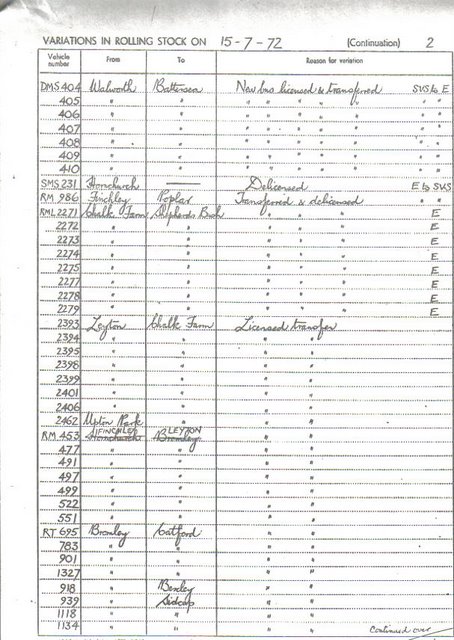 VARIATIONS IN ROLLING STOCK ON 15-7-72 (Continuation) 2
Vehicle number From To Reason for variation
DMS 404 Walworth Battersea New bus licensed & transferred SVS to E
405 " " " " " " " " "
406 " " " " " " " " "
407 " " " " " " " " "
408 " " " " " " " " "
409 " " " " " " " " "
410 " " " " " " " " "
SMS 231 Hornchurch —— Delicensed E to SVS
RM 986 Finchley Poplar Transferred & delicensed " "
RML 2271 Chalk Farm Shepherds Bush " " " E
2272 " " " " " E
2273 " " " " " E
2274 " " " " " E
2275 " " " " " E
2277 " " " " " E
2278 " " " " " E
2279 " " " " " E
2393 Leyton Chalk Farm Licensed transfer
2394 " " " "
2395 " " " "
2398 " " " "
2399 " " " "
2401 " " " "
2406 " " " "
2462 Upton Park " " "
FINCHLEY LEYTON
RM 453 Hornchurch Bromley " "
477 " " " "
491 " " " "
497 " " " "
499 " " " "
522 " " " "
551 " " " "
RT 695 Bromley Catford " "
783 " " " "
901 " " " "
1327 " " " "
918 " Bexley " "
939 " Sidcup " "
1118 " " " "
1134 " " " "
Continued over